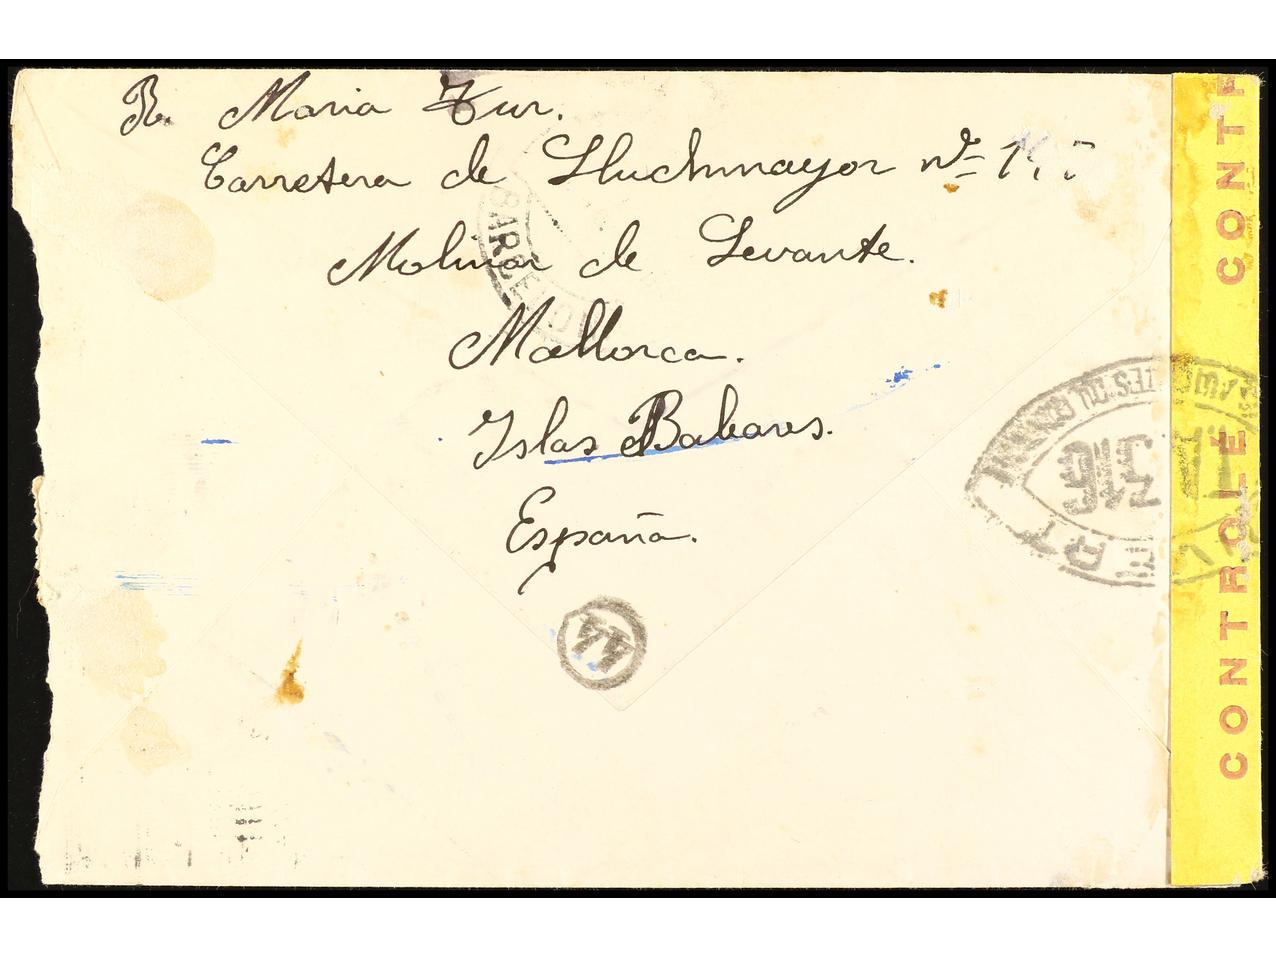 R. Maria Tur.
Carretera de Lluchmayor nº
Molinar de Levante.
Mallorca.
Islas Baleares.
España.
44
CONTROLE CONTR